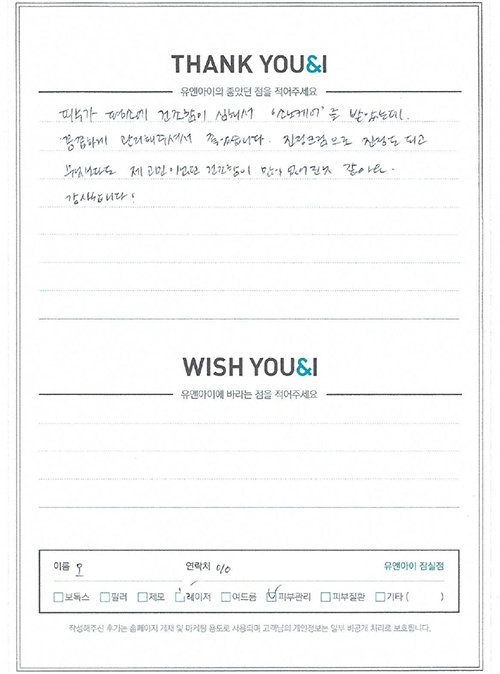 THANK YOU&I
유앤아이의 좋았던 점을 적어주세요
피부가 평소에 건조함이 심해서 '소노케어'를 받았는데.
꼼꼼하게 관리해주셔서 좋았습니다. 진정크림으로 진정도 되고
무엇보다도 제 고민이었던 건조함이 많이 없어진것 같아요.
감사합니다!
WISH YOU&I
유앤아이에 바라는 점을 적어주세요
이름 연락처 010 유앤아이 잠실점
보톡스 필러 제모 레이저 여드름 피부관리 피부질환 기타 ( )
작성해주신 후기는 홈페이지 게재 및 마케팅 용도로 사용되며 고객님의 개인정보는 일부 비공개 처리로 보호됩니다.